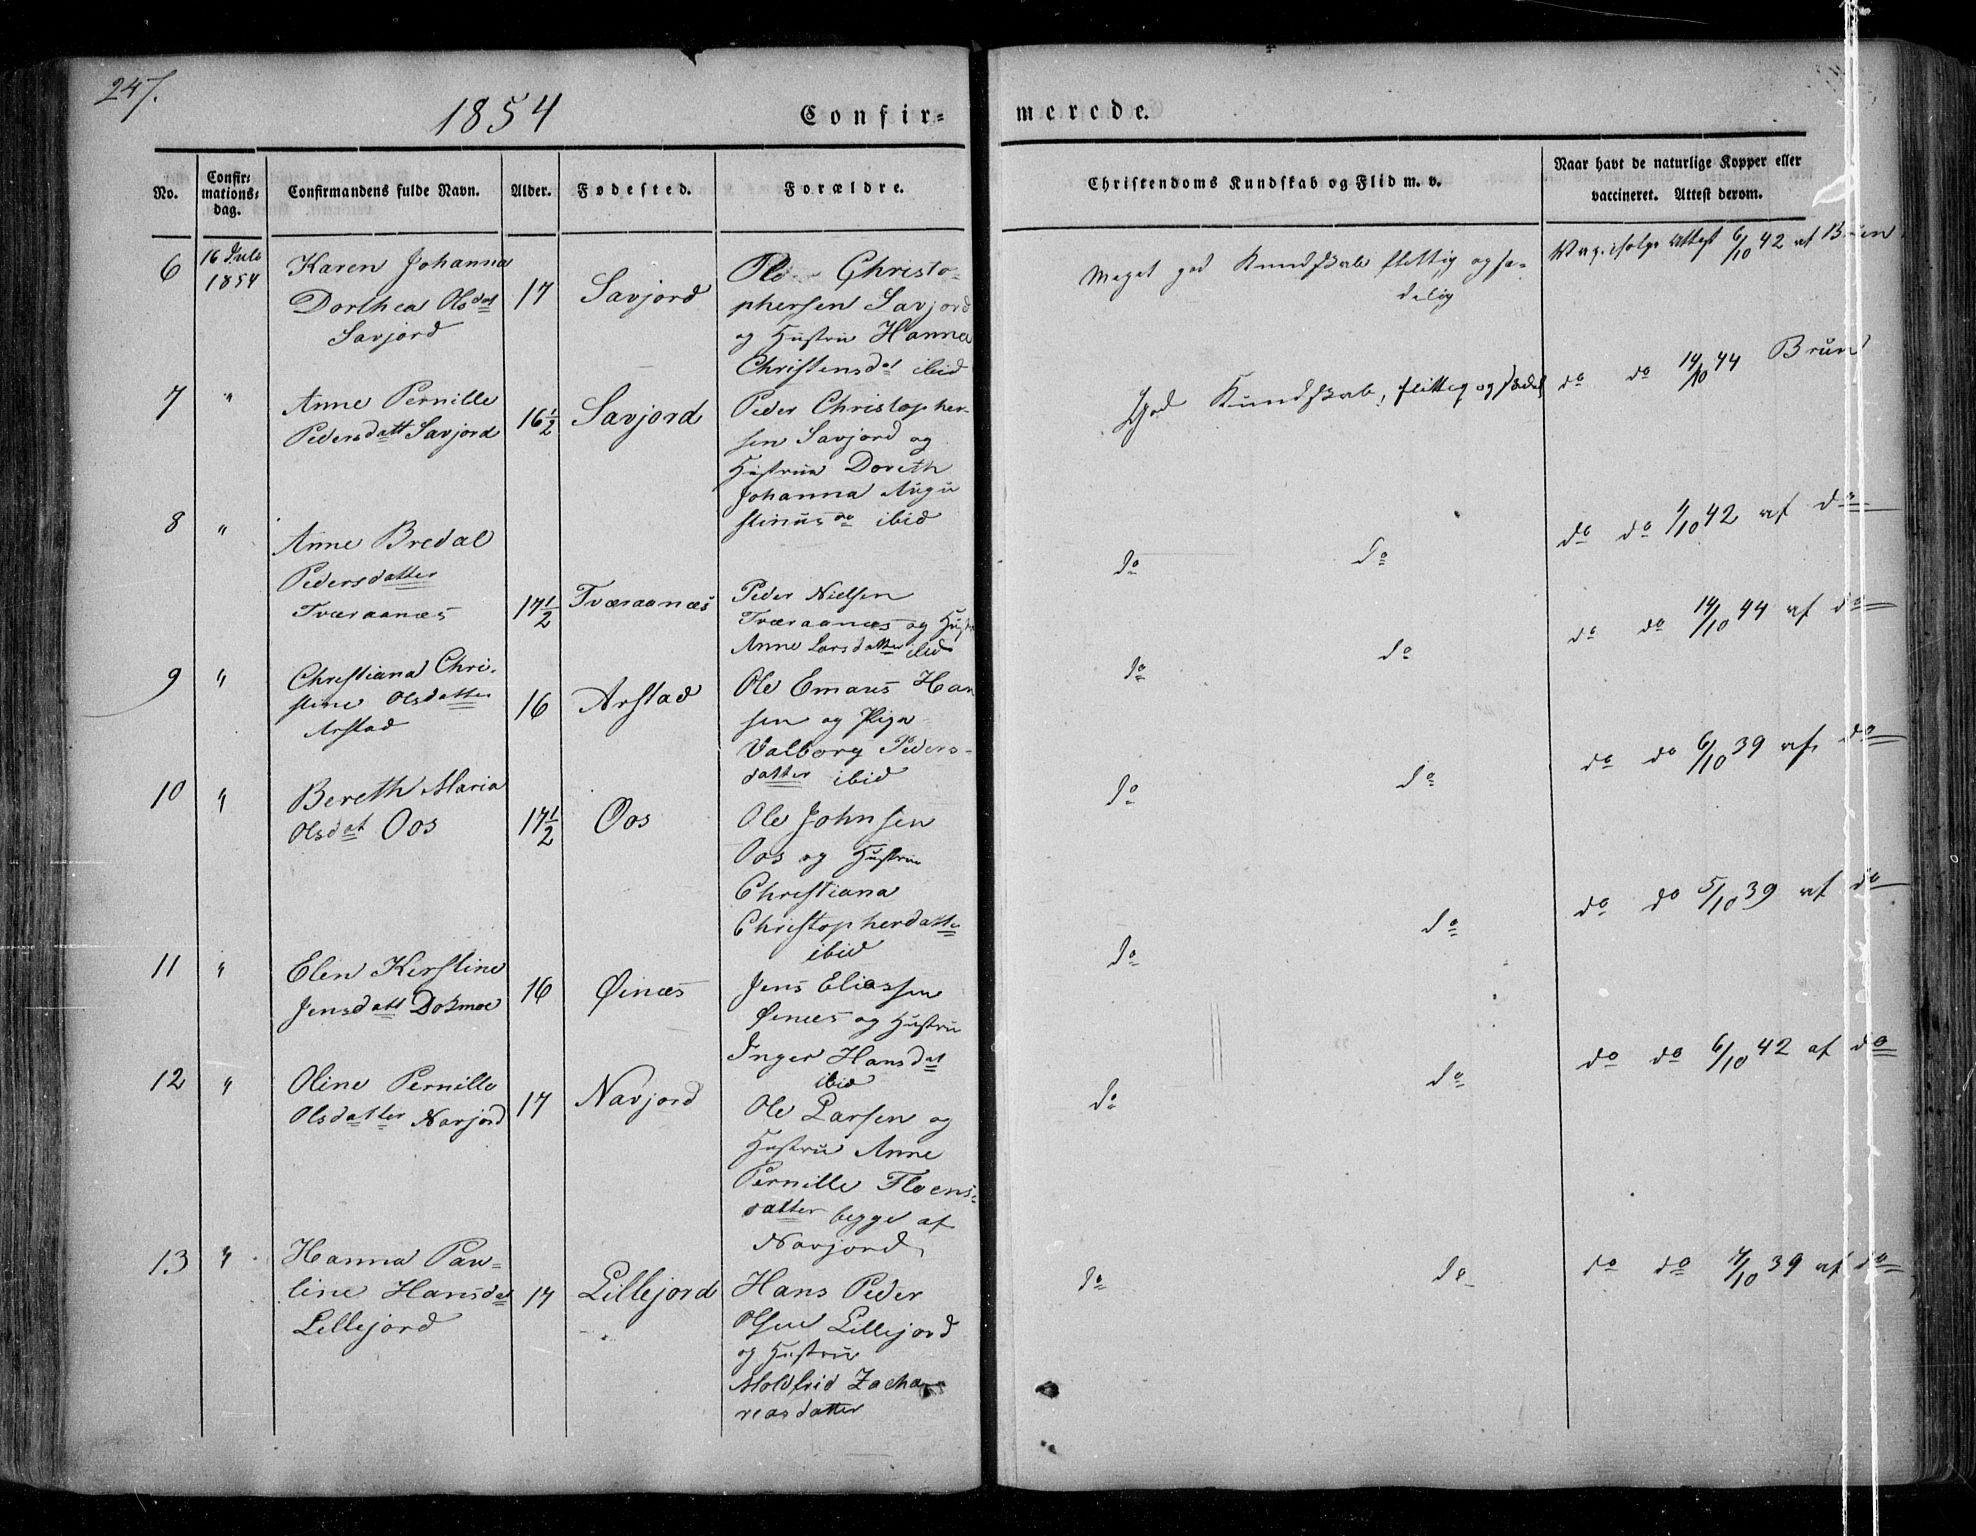 247.
1854
Confir-
merede.
No.
Confir-
mations-
dag.
Confirmandens fulde Navn.
Alder.
Fødested.
Forældre.
Christendoms Kundskab og Flid m. v.
Naar havt de naturlige Kopper eller
vaccineret. Attest derom.
6
16 Juli
1854
Karen Johanna
Dorthea Olsdat
Savjord
17
Savjord
Ole Christo-
phersen Savjord
og Hustru Hanna
Christensdat ibid
Meget god Kundskab flittig og sæ-
delig
Attest 6/10 42 af Brun
7
"
Anne Pernille
Pedersdatt Savjord
16½
Savjord
Peder Christopher-
sen Savjord og
Hustrue Doreth
Johanna Augu
stinus do ibid
God Kundskab, flittig og sædel
do do 14/10 44 Brun
8
"
Anne Bredal
Pedersdatter
Tværaanæs
17½
Tværaanæs
Peder Nielsen
Tværaanæs og Hustr
Anne Larsdatter ibid
do do
do do /10 42 af do
9
"
Christiana Chri-
stine Olsdatter
Arstad
16
Arstad
Ole Emaus Han
sen og Pige
Valborg Peders-
datter ibid
do do
do do 14/10 44 af do
10
"
Bereth Maria
Olsdat Oos
17½
Oos
Ole Johnsen
Oos og Hustrue
Christiana
Christopherdatte
ibid
do do
do do 6/10 39 af do
11
"
Elen Kerstine
Jensdatt Dokmoe
16
Øinæs
Jens Eliassen
Øinæs og Hustru
Inger Hansdat
ibid
do do
do do 5/10 39 af do
12
"
Oline Pernille
Olsdatter Navjord
17
Navjord
Ole Larsen og
Hustru Anne
Pernille Floens-
datter begge af
Navjord
do do
do do 6/10 42 af do
13
"
Hanna Pau-
line Hansdat
Lillejord
17
Lillejord
Hans Peder
Olsen Lillejord
og Hustrue
Moldfrid Zacha-
reasdatter
do do
do do 7/10 39 af do